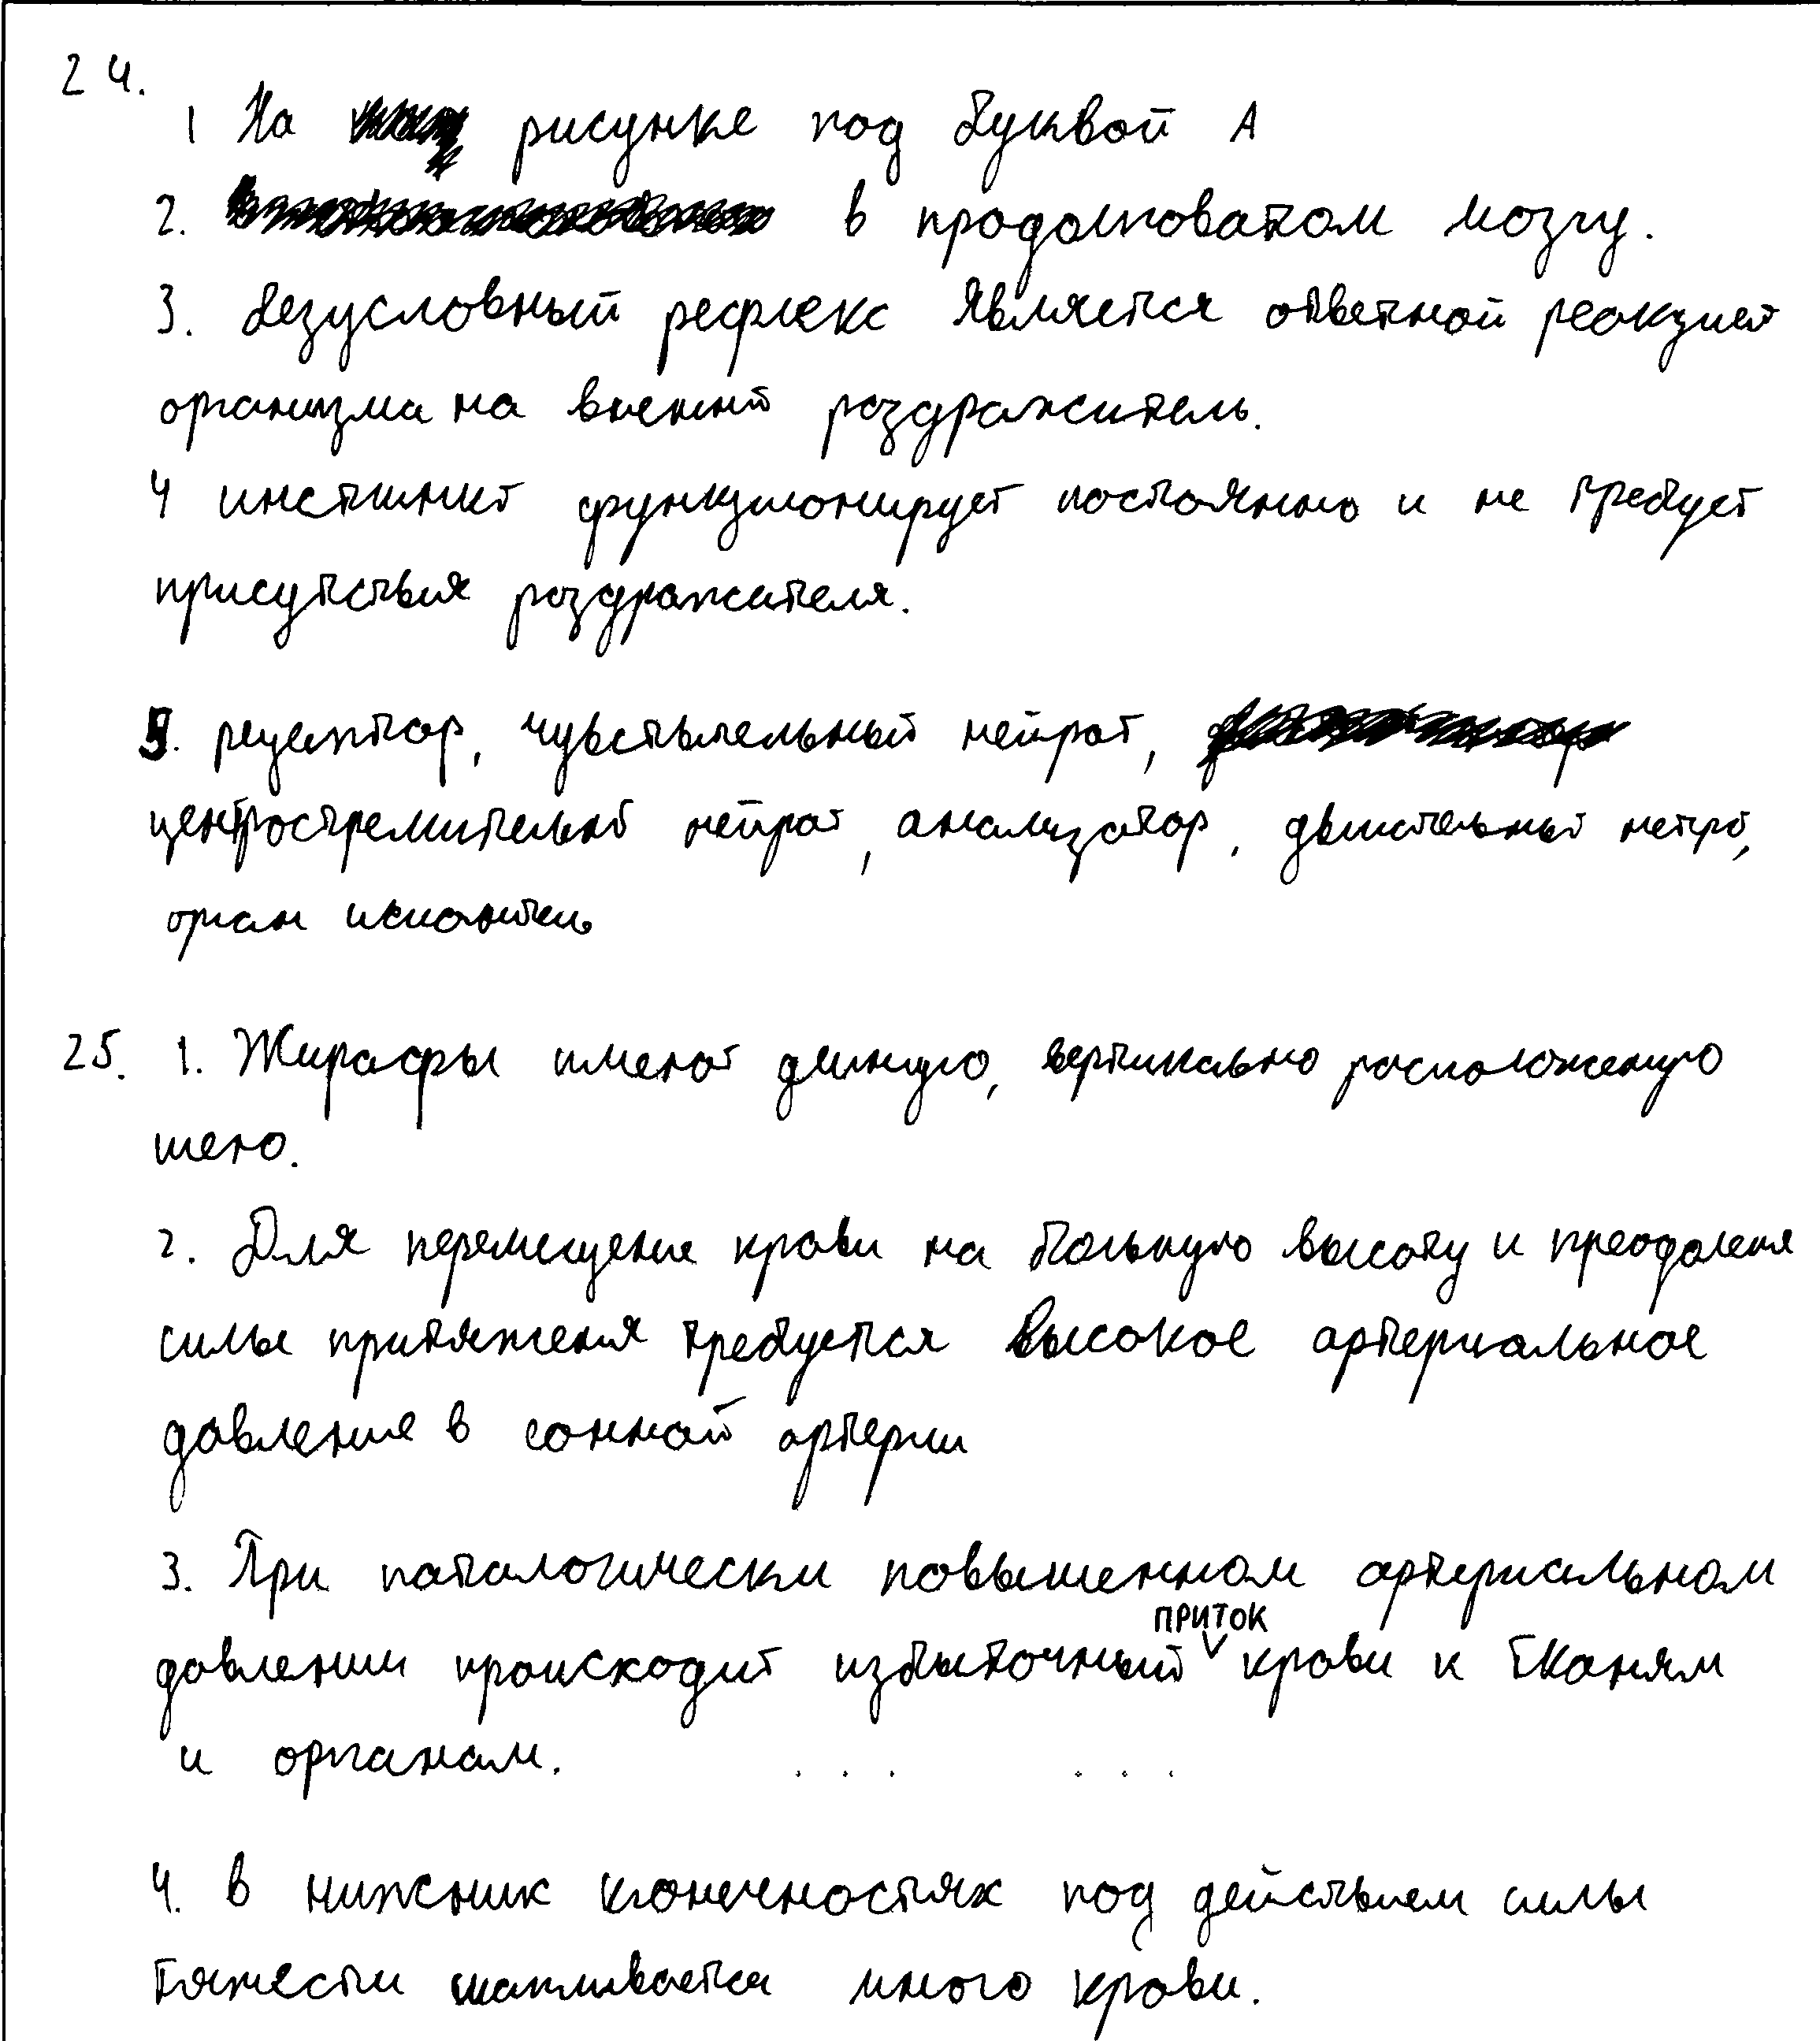 24.
1 На рисунке под буквой А
2. в продолговатом мозгу.
3. безусловный рефлекс является ответной реакцией
организма на внешнй раздражитель.
4 инстинкт функционирует постоянно и не требует
присутствия раздражителя.
5. рецептор, чувствительный нейрон,
центростремительнй нейрон, анализатор, двигательный нейрон,
орган
25. 1. Жирафы имеют длиную, вертикально расположеную
шею.
2. Для перемещение крови на большую высоту и преодоления
силы притяжения требуется высокое артериальное
давление в сонной артерии
3. При паталогически повышенном артериальном
давлении происходит избыточный приток крови к тканям
и органам.
4. в нижник конечностях под действием силы
тяжести скапливается много крови.